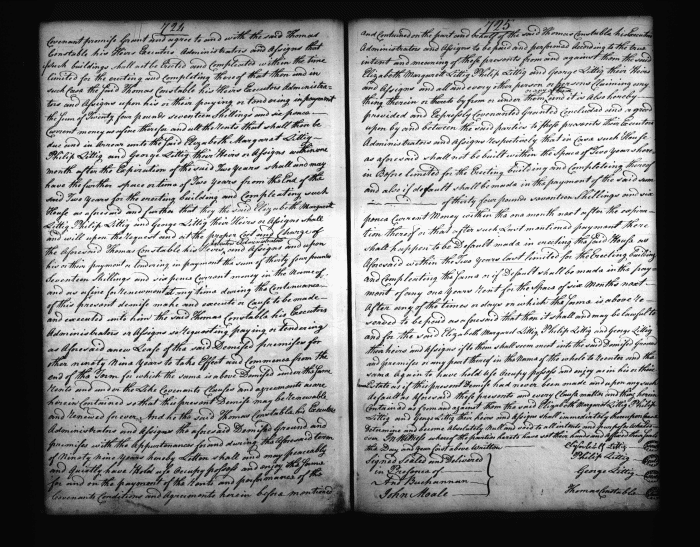 724
Covenant promise Grant and agree to and with the said Thomas
Constable his Heirs Executors Administrators and Assigns that
such buildings shall not be Erected and Compleated within the time
limited for the erecting and Compleating thereof that then and in
such Case the said Thomas Constable his Heirs Executors Administra-
tors and Assigns upon his or their paying or tendering in payment
the Sum of Thirty four pounds seventeen Shillings and six pence
Current money as a fine therefor and all the Rents that shall then be
due and in arrear unto the said Elizabeth Margaret Littig
Philip Littig and George Littig their Heirs or Assigns within one
month after the Expiration of the said Two Years shall and may
have the further space or time of Two Years from the End of the
said Two Years for the erecting building and Compleating such
House as aforesaid and further that they the said Elizabeth Margaret
Littig Philip Littig and George Littig their Heirs or Assigns shall
and will upon the request and at the proper Cost and Charge of
the Aforesaid Thomas Constable his Heirs and Assigns and upon
his or their payment or tendering in payment the sum of thirty four pounds
Seventeen Shillings and six pence Current money in the Name of
and as a fine for Renewment at any time during the Continuance
of this present demise make and execute or Cause to be made
and executed unto him the said Thomas Constable his Executors
Administrators or Assigns so Requesting paying or tendering
as Aforesaid a new Lease of the said Demised premises for
other ninety Nine Years to take Effect and Commence from the
end of the Term for which the same is above Demised under the same
Rents and under the Like Covenants Clauses and agreements as are
herein Contained so that this present Demise may be Renewable
and Renewed for ever And he the said Thomas Constable his Executors
Administrators and Assigns the aforesaid Demised Ground and
premises with the Appurtenances for and during the Aforesaid term
of Ninety nine Years hereby Letten shall and may peaceably
and Quietly have Hold use Occupy possess and enjoy the same
for and on the payment of the Rents and performance of the
Covenants Conditions and Agreements herein before mentioned
725
and Contained on the part and behalf of the said Thomas Constable his Executors
Administrators and Assigns to be paid and performed according to the true
intent and meaning of these presents from and against them the said
Elizabeth Margaret Littig Philip Littig and George Littig their Heirs
and Assigns and all and every other person or persons Claiming any
thing therein or thereto by from or under them and it is also hereby
provided and Expressly Covenanted Granted Concluded and agreed
upon by and between the said parties to these presents their Executors
Administrators and Assigns respectively that in Case such House
as aforesaid shall not be built within the Space of Two Years herein
before Limited for the Erecting building and Compleating thereof
and also if default shall be made in the payment of the said sum
of thirty four pounds seventeen Shillings and six
pence Current Money within the one month next after the expira-
tion thereof or that after such Last mentioned payment there
shall happen to be Default made in erecting the said House as
Aforesaid within the Two Years last limited for the Erecting building
and Compleating the same or if Default shall be made in the pay
ment of any one Years Rent for the Space of six Months next
After any of the times or days on which the same is above Re
served to be paid as aforesaid that then it shall and may be lawful to
and for the said Elizabeth Margaret Littig Philip Littig and George Littig
their heirs and Assigns if to them shall seem meet into the said Demised Ground
and premises or any part thereof in the Name of the whole to Reenter and the
same Again to have hold use Occupy possess and enjoy as in his or their
Estate as if this present Demise had never been made and upon any such
default as Aforesaid these presents and every Clause matter and thing herein
Contained as from and against them the said Elizabeth Margaret Littig Philip
Littig and George Littig their heirs and Assigns shall immediately thereupon
Determine and become Absolutely Null and void to all intents and purposes whatso
ever In Witness whereof the parties hereto have set their hands and affixed their seals
the Day and Year first above Written
Signed Sealed and Delivered
in Presence of
And Buchannan
John Moale
Elizabeth M Littig
Philip Littig
George Littig
Thomas Constable